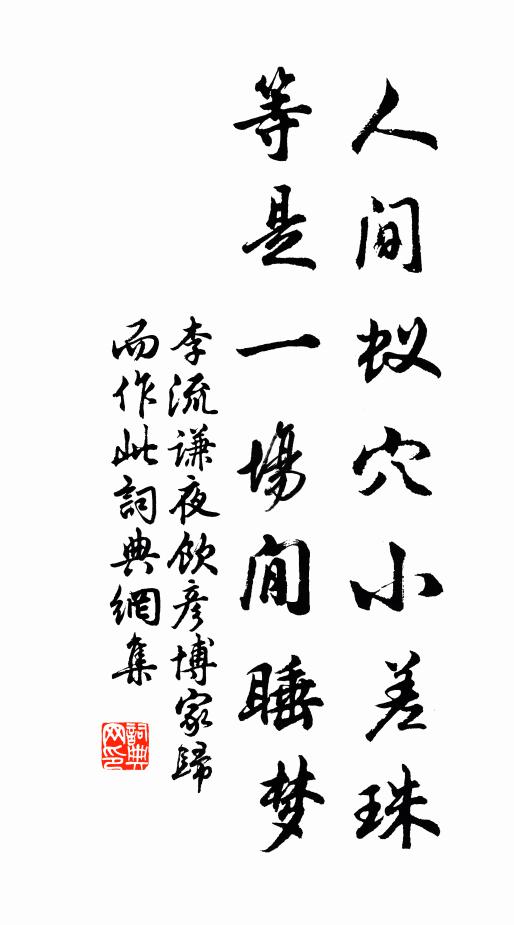 人间蚁穴小差珠
等是一場閒睡梦
李流谦夜飲彦博家歸
而作此詞典網集
詞典
网印